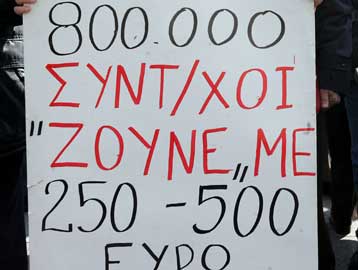 800.000
ΣΥΝΤ/ΧΟΙ
"ΖΟΥΝΕ„ ΜΕ
250 - 500
ΕΥΡΟ